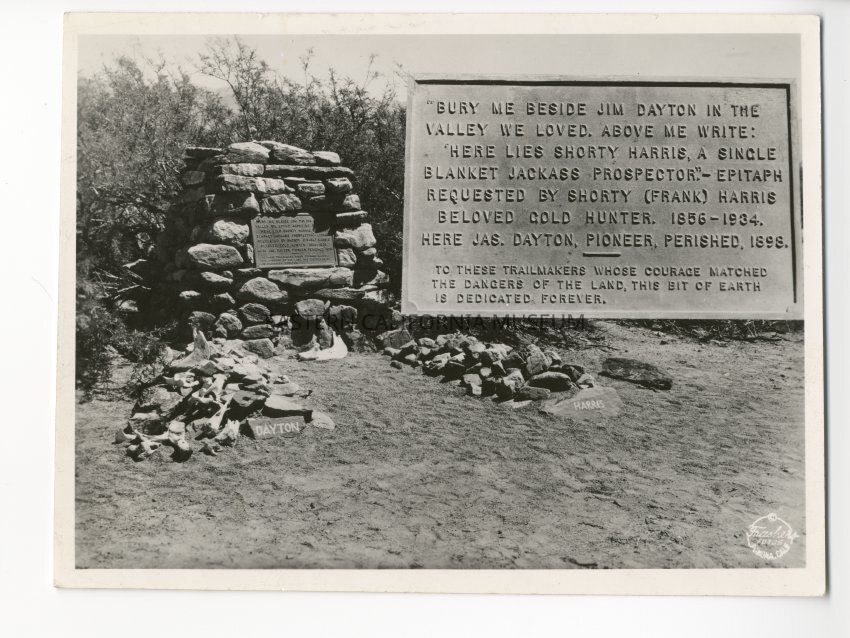 "BURY ME BESIDE JIM DAYTON IN THE
VALLEY WE LOVED. ABOVE ME WRITE:
'HERE LIES SHORTY HARRIS, A SINGLE
BLANKET JACKASS PROSPECTOR."-EPITAPH
REQUESTED BY SHORTY (FRANK) HARRIS
BELOVED GOLD HUNTER. 1856-1934.
HERE JAS. DAYTON, PIONEER, PERISHED, 1898.
TO THESE TRAILMAKERS WHOSE COURAGE MATCHED
THE DANGERS OF THE LAND, THIS BIT OF EARTH
IS DEDICATED FOREVER.
EASTERN CALIFORNIA MUSEUM
HARRIS
DAYTON
Frashers
POMONA, CAL.